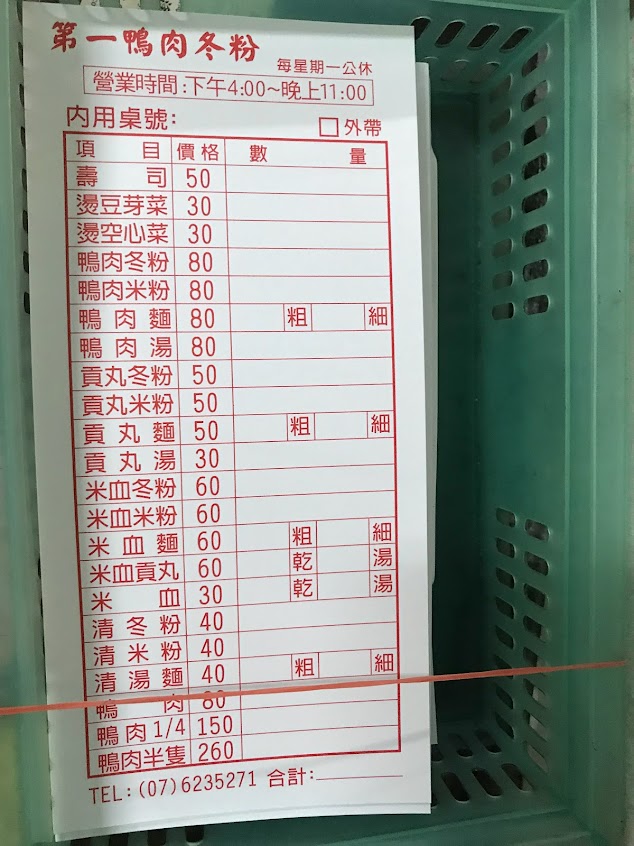 第一鴨肉冬粉
每星期一公休
營業時間:下午4:00~晚上11:00
內用桌號:
□外帶
項目 價格 數量
壽司 50
燙豆芽菜 30
燙空心菜 30
鴨肉冬粉 80
鴨肉米粉 80
鴨肉麵 80 粗 細
鴨肉湯 80
貢丸冬粉 50
貢丸米粉 50
貢丸麵 50 粗 細
貢丸湯 30
米血冬粉 60
米血米粉 60
米血麵 60 粗 細
米血貢丸 60 乾 湯
米血 30 乾 湯
清冬粉 40
清米粉 40
清湯麵 40 粗 細
鴨肉 80
鴨肉1/4 150
鴨肉半隻 260
TEL:(07)6235271 合計: